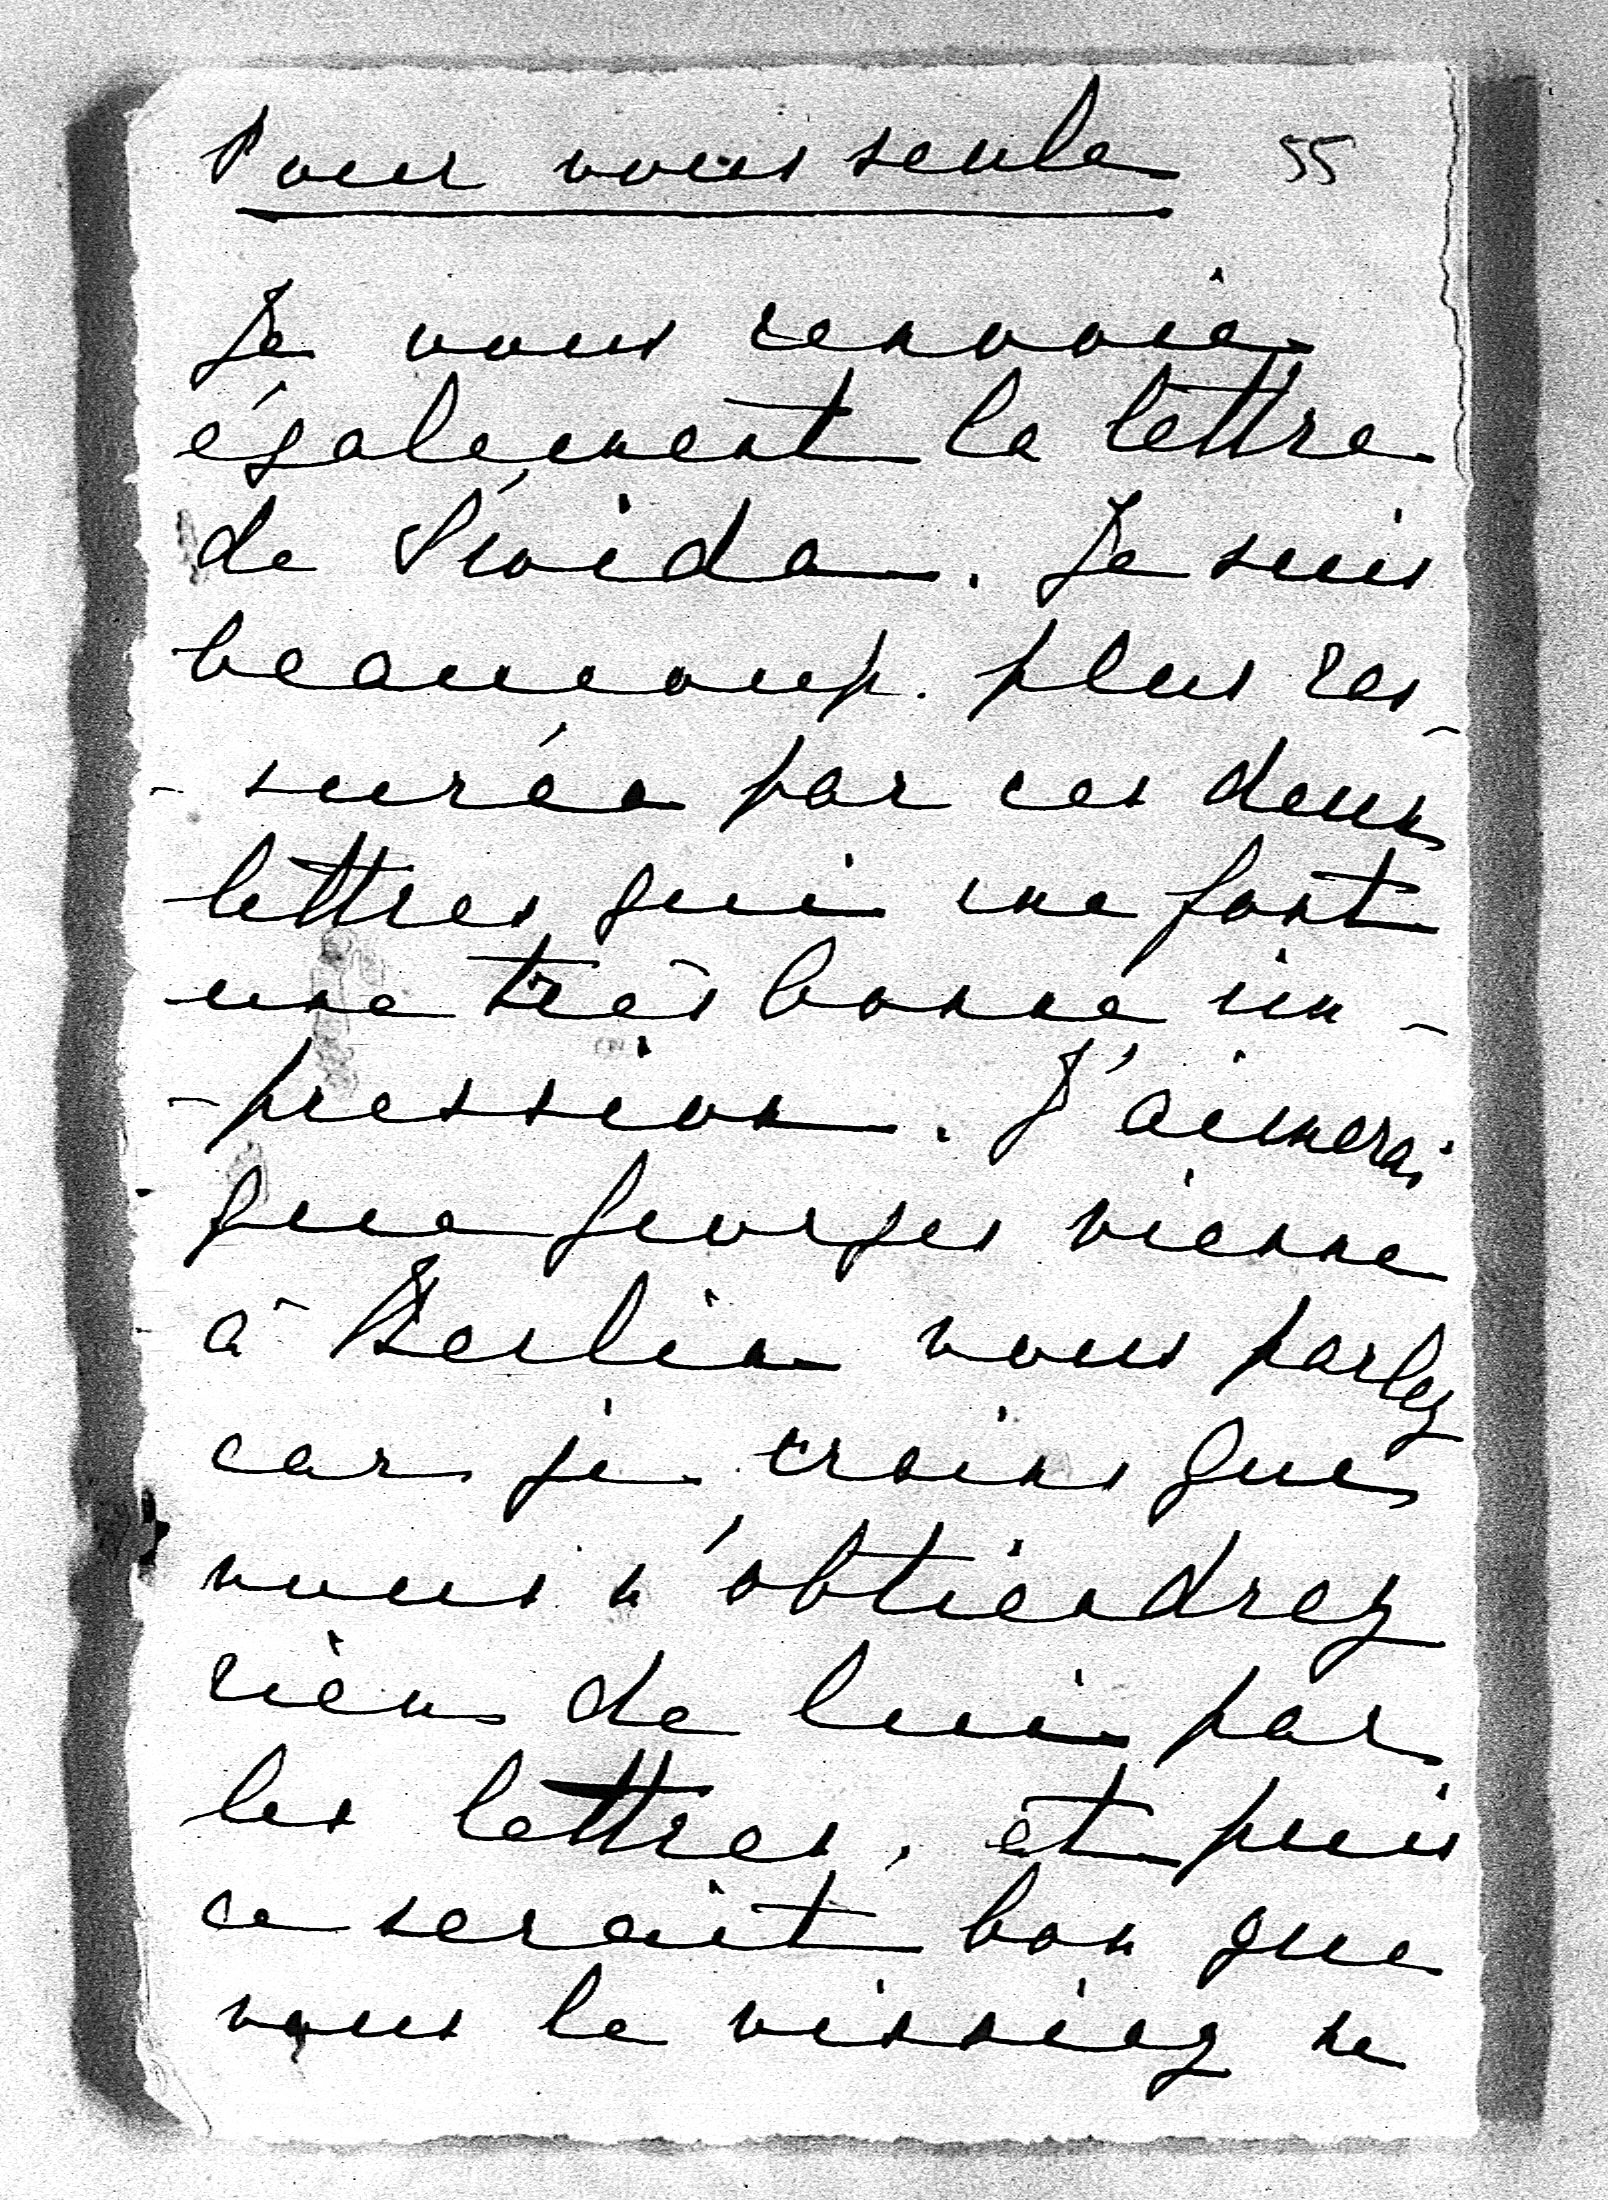 Pour vous seule 55
Je vous renvoie
également la lettre
de Froida. Je suis
beaucoup plus ras
- surée par ces deux
lettres qui me font
une très bonne im -
- pression. J'aimerai
que Georges vienne
à Berlin vous parlez
car je crains que
vous n'obtiendrez
rien de lui par
les lettres, et puis
ce serait bon que
vous le vissiez se